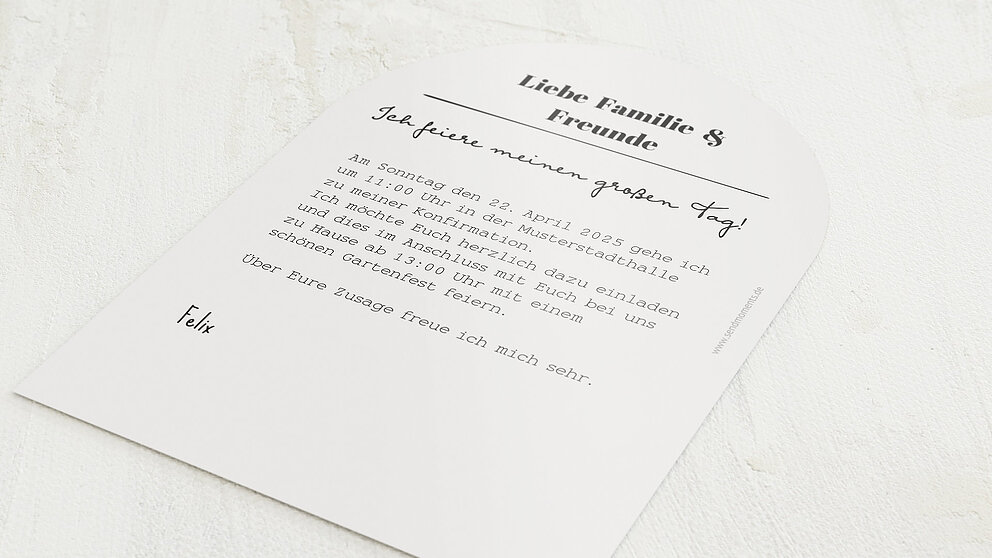 Liebe Familie &
Freunde
Ich feiere meinen großen Tag!
Am Sonntag den 22. April 2025 gehe ich
um 11:00 Uhr in der Musterstadthalle
zu meiner Konfirmation.
Ich möchte Euch herzlich dazu einladen
und dies im Anschluss mit Euch bei uns
zu Hause ab 13:00 Uhr mit einem
schönen Gartenfest feiern.
Über Eure Zusage freue ich mich sehr.
Felix
www.sendmoments.de